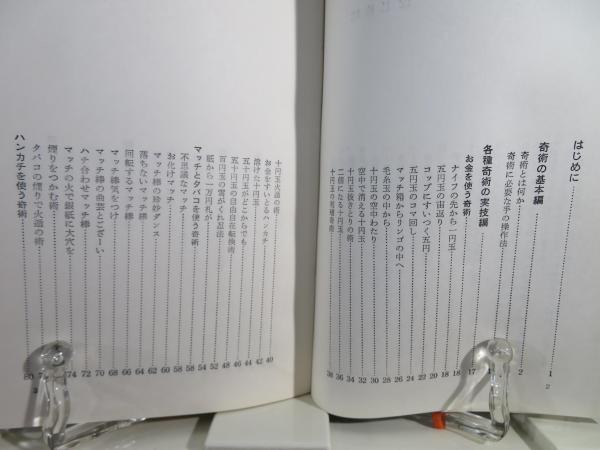 はじめに……1
奇術の基本編……2
奇術とは何か……2
奇術に必要な手の操作法
各種奇術の実技編……17
お金を使う奇術……18
ナイフの先から一円玉……18
五円玉の宙返り……20
コップにすいつく五円……22
五円玉のコマ回し……24
マッチ箱からリンゴの中へ……26
毛糸玉の中から……28
十円玉の空中わたり……30
空中で消える十円玉……32
十円玉抜きとりの術……34
二倍になる十円玉……36
十円玉の死確術……38
十円玉火通の術……40
お金をすいとるハンカチ……42
溶けた十円玉……44
五十円玉がどこからでも……46
五十円玉の自由自在転換術……48
百円玉の雲がくれ忍法……52
紙から一万円札が……54
マッチとタバコを使う奇術……58
不思議なマッチ……58
お化けマッチ……60
マッチ棒の珍妙ダンス……62
落ちないマッチ棒……64
回転するマッチ棒……66
マッチ棒気をつけ……68
マッチ棒の曲芸とござーい……70
ハチ合わせマッチ棒……72
マッチの火で銀紙に大穴を……74
煙りをつかむ術
タバコの煙りで火通の術
ハンカチを使う奇術……80